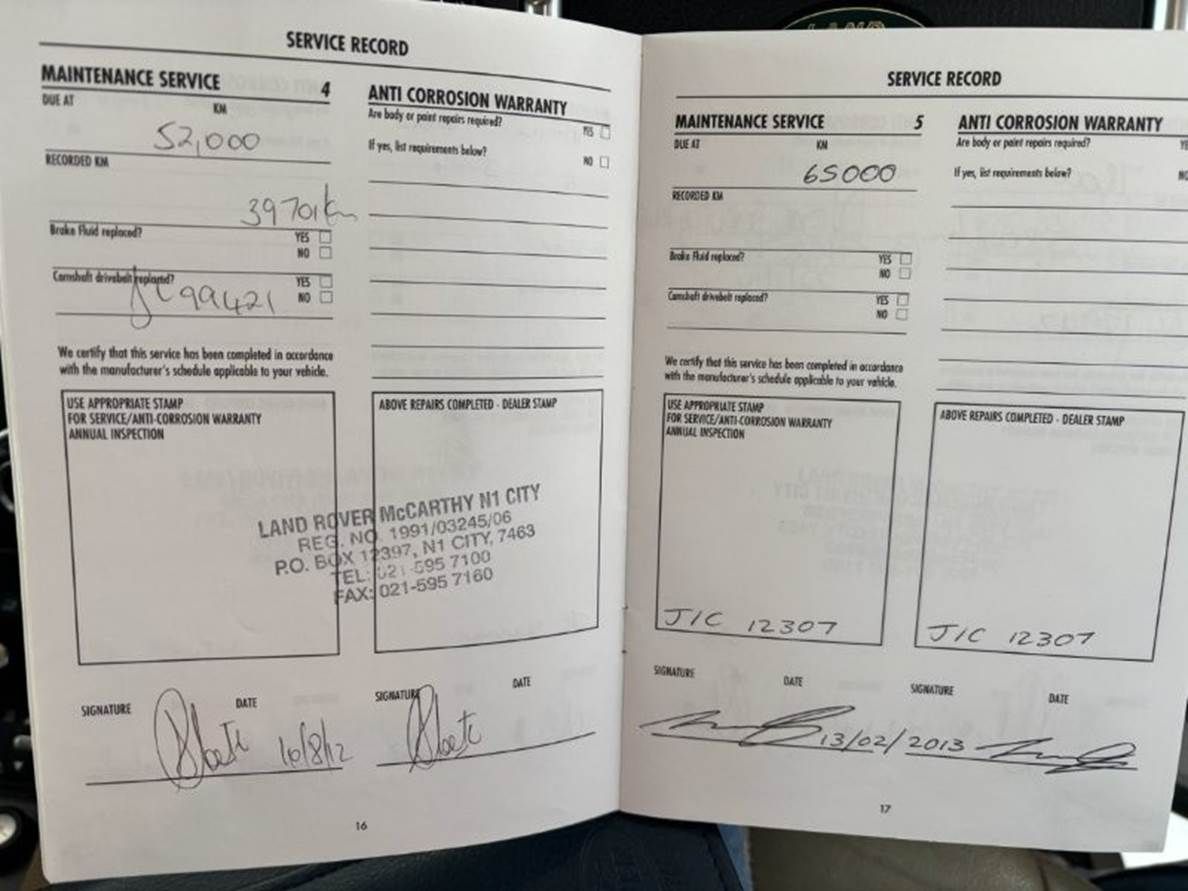 LAND
SERVICE RECORD
MAINTENANCE SERVICE 4
DUE AT KM
52,000
RECORDED KM
39701km
Brake Fluid replaced? YES
NO
Camshaft drivebelt replaced? YES
NO
99421
We certify that this service has been completed in accordance
with the manufacturer's schedule applicable to your vehicle.
USE APPROPRIATE STAMP
FOR SERVICE/ANTI-CORROSION WARRANTY
ANNUAL INSPECTION
ANTI CORROSION WARRANTY
Are body or paint repairs required? YES
If yes, list requirements below? NO
ABOVE REPAIRS COMPLETED - DEALER STAMP
LAND ROVER McCARTHY N1 CITY
REG. NO. 1991/03245/06
P.O. BOX 12397, N1 CITY, 7463
TEL: 021-595 7100
FAX: 021-595 7160
SIGNATURE DATE
16/8/12
SIGNATURE DATE
16
SERVICE RECORD
MAINTENANCE SERVICE 5
DUE AT KM
65000
RECORDED KM
Brake Fluid replaced? YES
NO
Camshaft drivebelt replaced? YES
NO
We certify that this service has been completed in accordance
with the manufacturer's schedule applicable to your vehicle.
USE APPROPRIATE STAMP
FOR SERVICE/ANTI-CORROSION WARRANTY
ANNUAL INSPECTION
J/C 12307
SIGNATURE DATE
13/02/2013
ANTI CORROSION WARRANTY
Are body or paint repairs required? YE
If yes, list requirements below? NO
ABOVE REPAIRS COMPLETED - DEALER STAMP
J/C 12307
SIGNATURE DATE
17